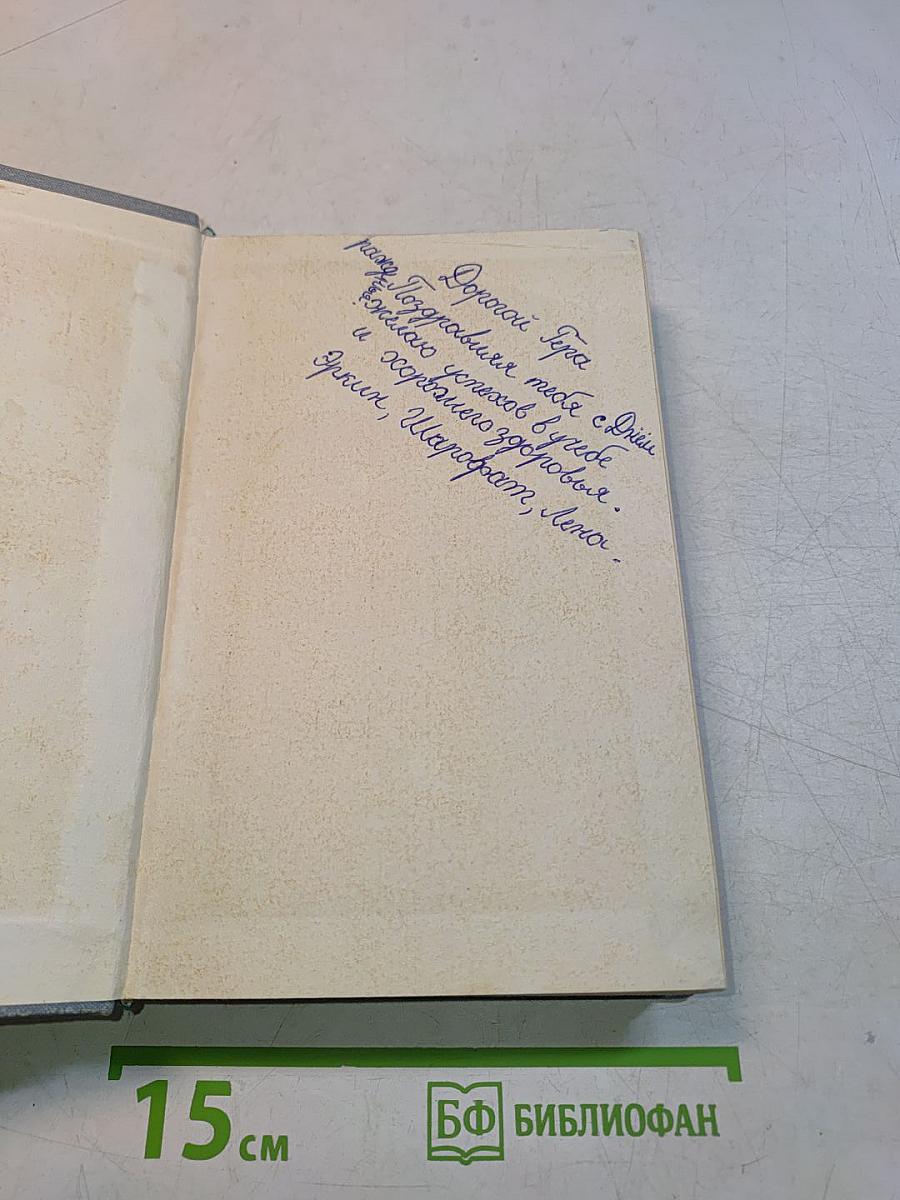 Дорогой Гера
Поздравляя тебя с Днём
рожд.
желаю успехов в учебе
и хорошего здоровья.
Эркин, Шарофат, Лена.
15 см
БФ БИБЛИОФАН